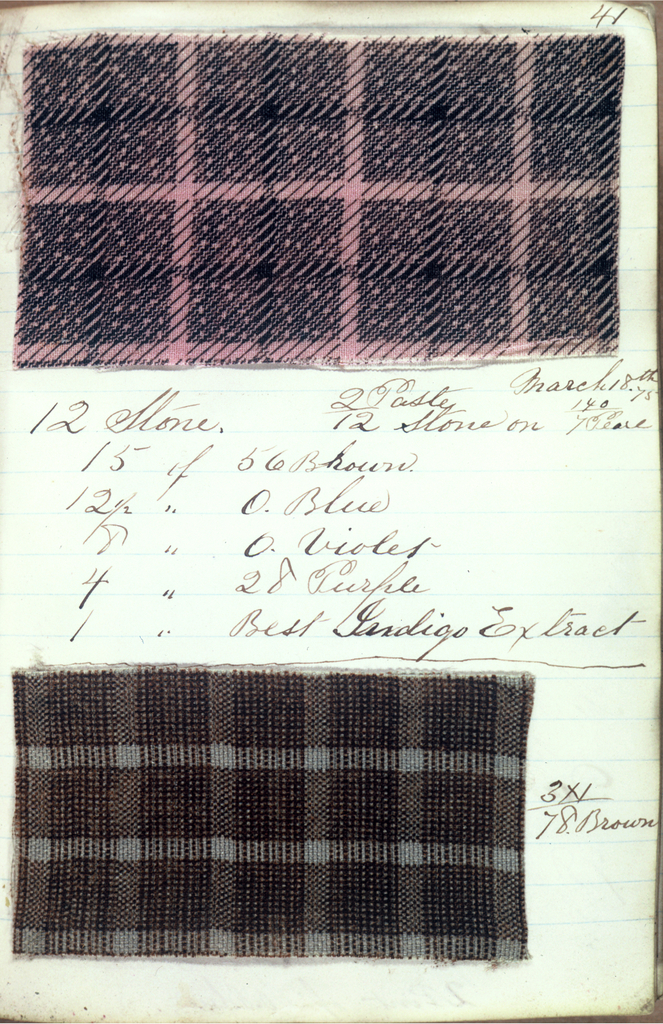 41
March 18th 75
2 Paste 140
12 Stone. 12 Stone on 7 Pearl
15 of 56 Brown.
12½ " O. Blue
8 " O. Violet
4 " 28 Purple
1 " Best Indigo Extract
3X1
78. Brown